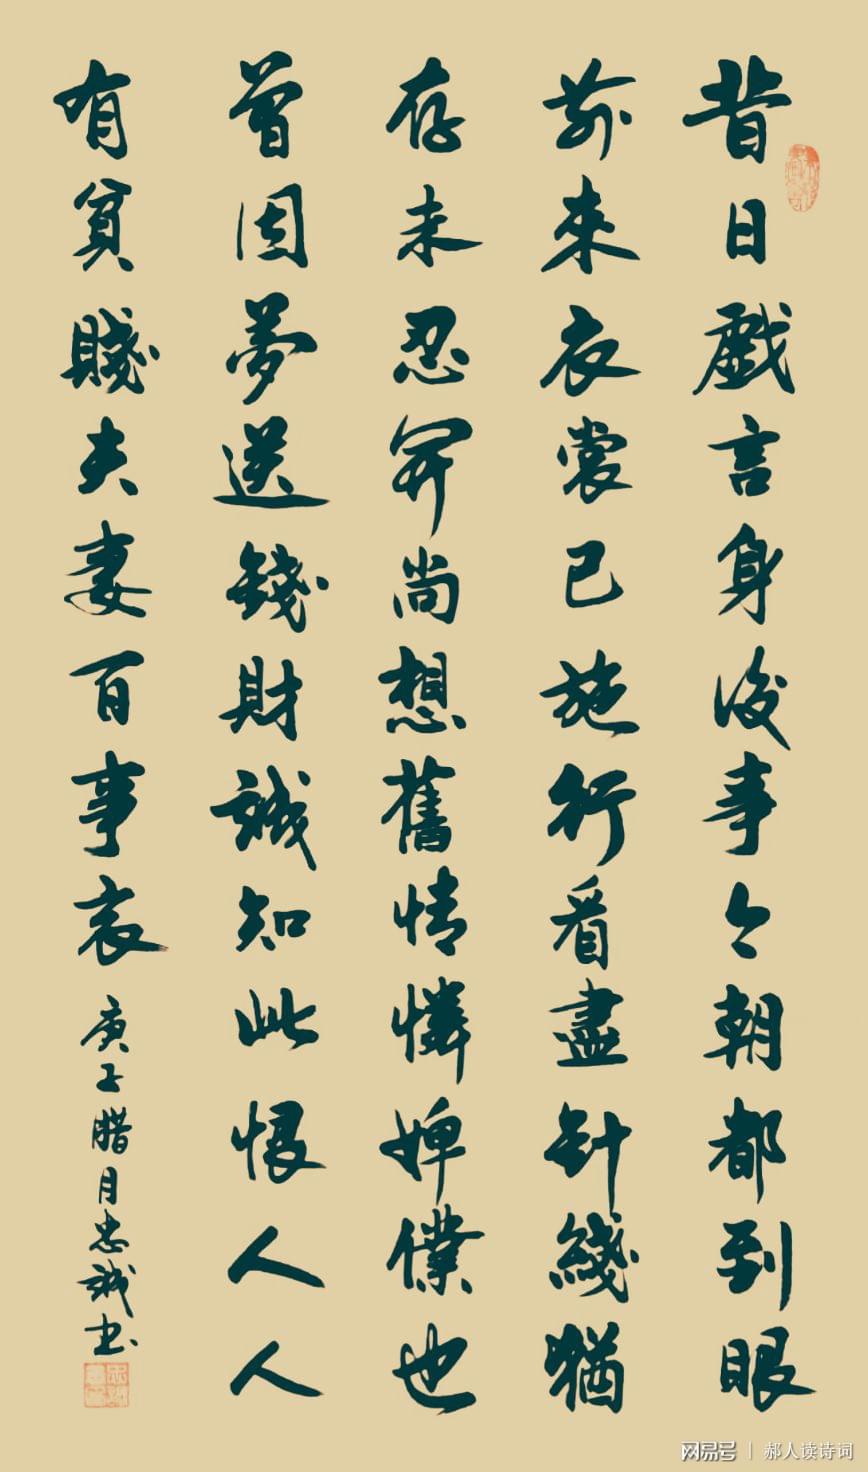 昔日戲言身後事今朝都到眼
前來衣裳已施行看盡針綫猶
存未忍開尚想舊情憐婢僕也
曾因夢送錢財誠知此恨人人
有貧賤夫妻百事哀
庚子腊月忠誠书
网易号 | 郝人读诗词